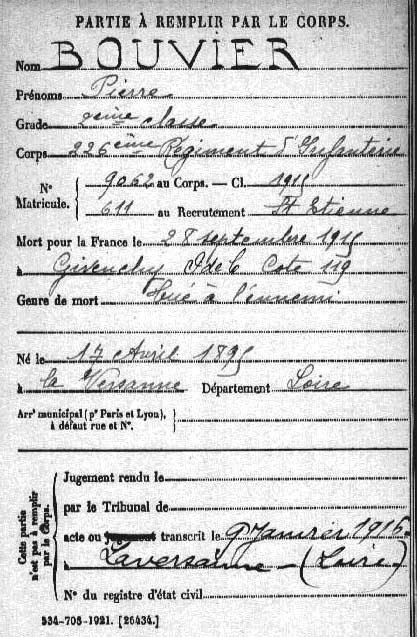 PARTIE À REMPLIR PAR LE CORPS.
Nom BOUVIER
Prénoms Pierre
Grade 2ème classe
Corps 226ème Régiment d'Infanterie
N° Matricule. 9062 au Corps. — Cl. 1915
611 au Recrutement St Etienne
Mort pour la France le 28 septembre 1915
à Givenchy PdeC Cote 119
Genre de mort Tué à l'ennemi
Né le 17 Avril 1895
à la Versanne Département Loire
Arrt municipal (pr Paris et Lyon),
à défaut rue et N°.
Cette partie n'est pas à remplir par le Corps.
Jugement rendu le
par le Tribunal de
acte ou jugement transcrit le 9 Janvier 1916
à Laversanne - (Loire)
N° du registre d'état civil
534-708-1921. [26434.]